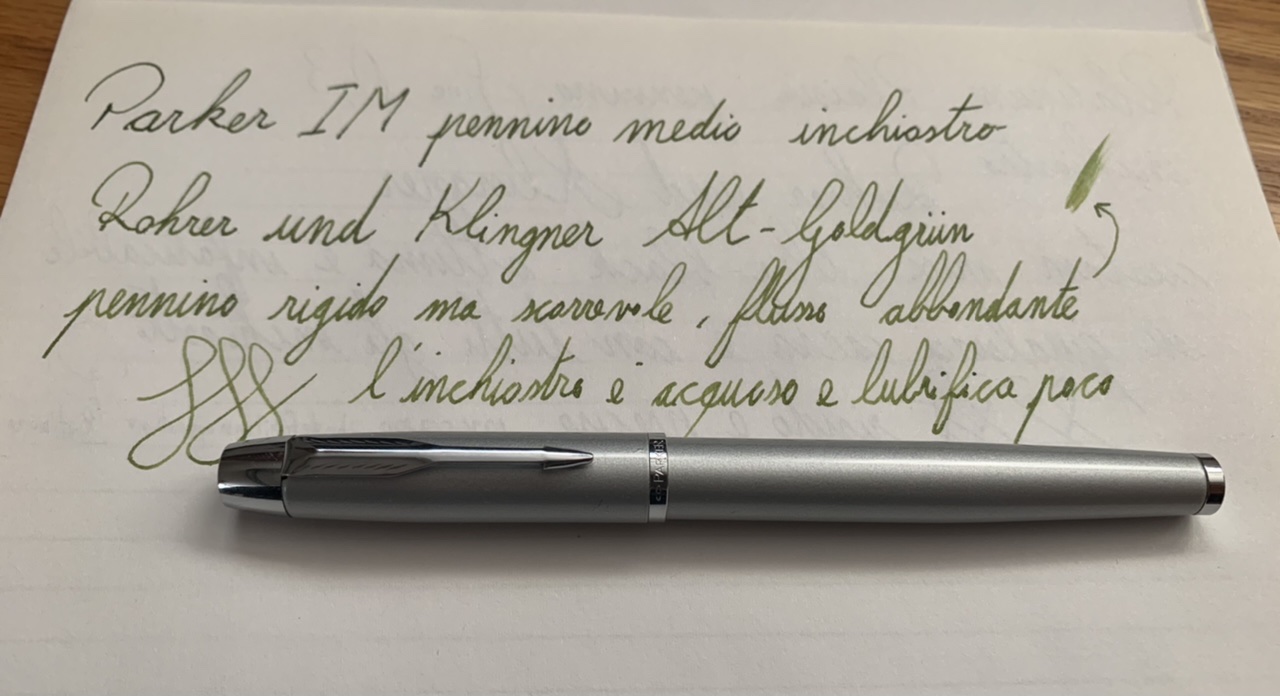 Parker IM pennino medio inchiostro
Rohrer und Klingner Alt-Goldgrün
pennino rigido ma scorrevole, flusso abbondante
l'inchiostro è acquoso e lubrifica poco
PARKER